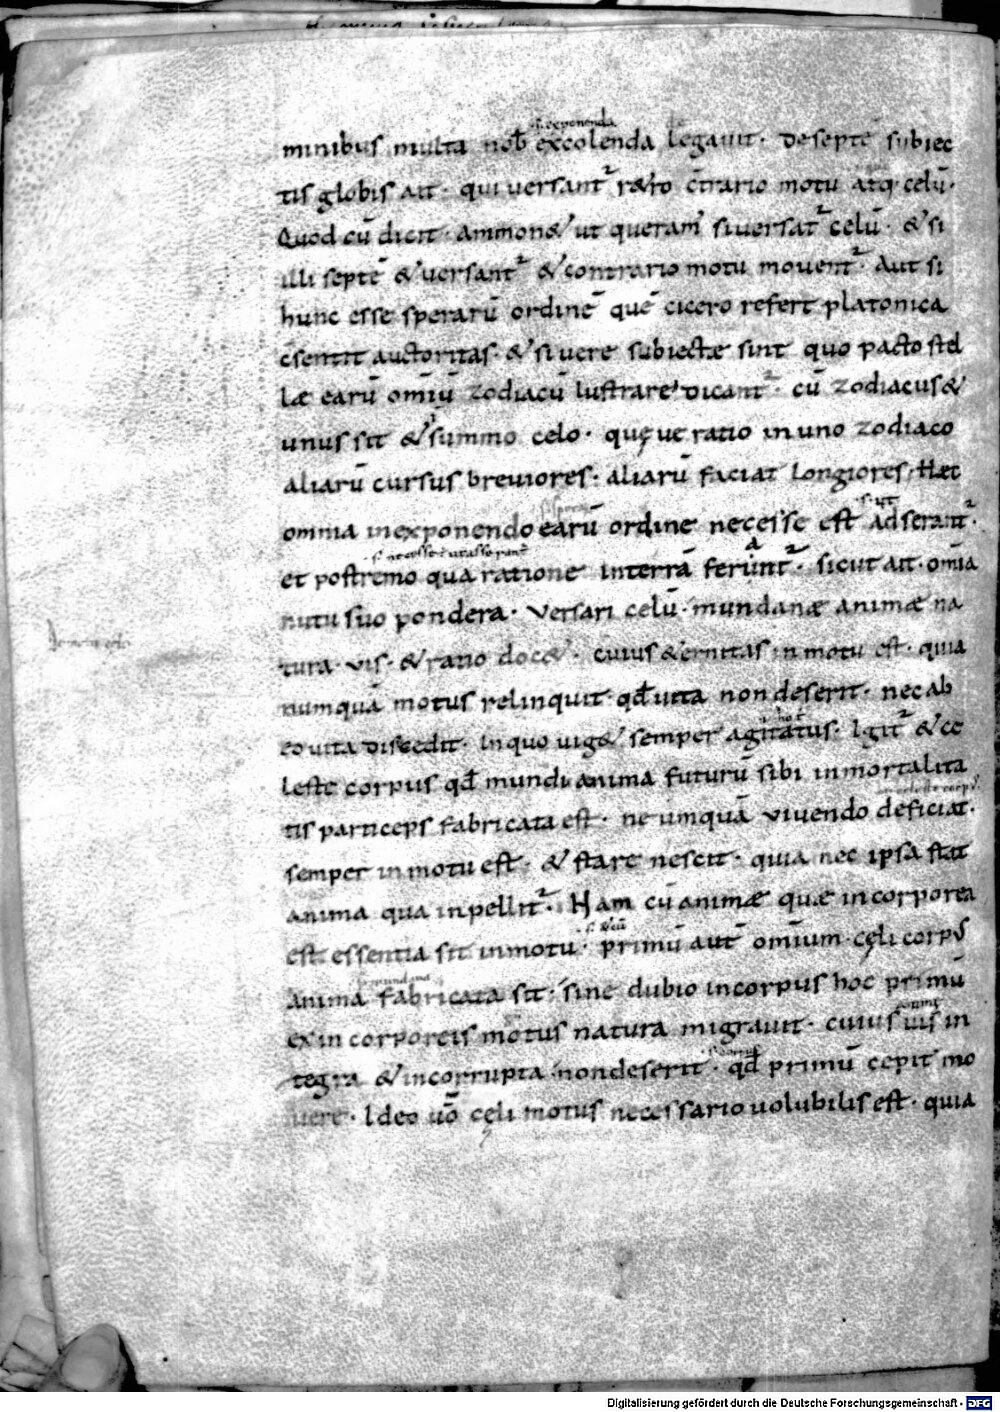 s. exponenda
minibus multa nob̄ excolenda legauit· De septē subiec
tis globis ait· qui uersant᷑ r&ro c̄trario motu atq· celū·
Quod cū dicit· ammon& ut queram̄ si uersat᷑ celū· & si
illi septē & uersant᷑ & contrario motu mouent᷑· Aut si
hunc esse sperarū ordinē quē cicero refert platonica
c̄sentit auctoritas· & si uere subiectæ sint quo pacto stel
læ earū omiū zodiacū lustrare dicant᷑· cū zodiacus &
unus sit & ī summo celo· quęue ratio in uno zodiaco
aliarū cursus breuiores· aliarū faciat longiores· Hæc
omnia in exponendo earū ordine necesse est adserant᷑·
et postremo qua ratione in terrā ferunt᷑· sicut ait· om̄ia
nutu suo pondera· Versari celū· mundanæ animæ na
tura· uis· & ratio doc&· cuius &ernitas in motu est· quia
numquā motus relinquit· qđ uita non deserit· nec ab
eo uita discedit· In quo uig& semper agitatus· Igit᷑ & ce
leste corpus qđ mundi anima futurū sibi inmortalita
tis particeps fabricata est· ne umquā viuendo deficiat·
semper in motu est· & stare nescit· quia nec ipsa stat
anima qua inpellit᷑· Nam cū animæ quæ incorporea
est essentia sit in motu· primū aut̄ omium· cęli corpus
anima fabricata sit· sine dubio in corpus hoc primū
ex incorporeis motus natura migrauit· cuius uis in
tegra & incorrupta non deserit· qđ primū cepit mo
uere· Ideo uō cęli motus necessario uolubilis est· quia
Digitalisierung gefördert durch die Deutsche Forschungsgemeinschaft - DFG